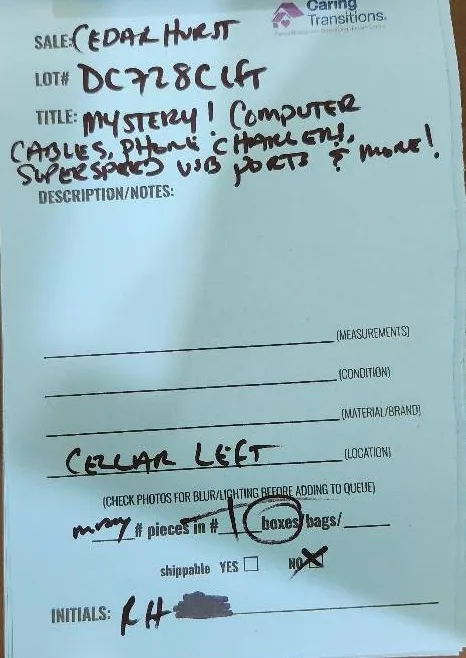 Caring
Transitions.
SALE: CEDARHURST
LOT# DC728CLFT
TITLE: MYSTERY! COMPUTER
CABLES, PHONE CHARGERS,
SUPERSPEED USB PORTS & MORE!
DESCRIPTION/NOTES:
(MEASUREMENTS)
(CONDITION)
(MATERIAL/BRAND)
CELLAR LEFT (LOCATION)
(CHECK PHOTOS FOR BLUR/LIGHTING BEFORE ADDING TO QUEUE)
many # pieces in # 1 boxes/bags/
shippable YES NO X
INITIALS: RH